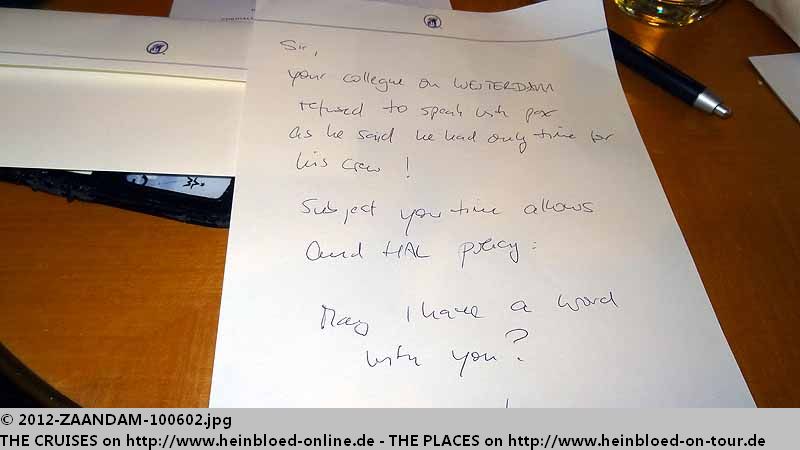 Sir,
your collegue on WESTERDAM
refused to speak with pax
as he said he had only time for
his crew !
Subject your time allows
and HAL policy:
May I have a word
with you?
© 2012-ZAANDAM-100602.jpg
THE CRUISES on http://www.heinbloed-online.de - THE PLACES on http://www.heinbloed-on-tour.de